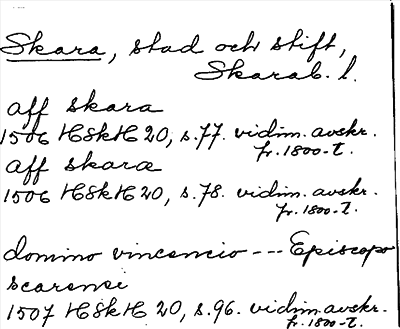 Skara, stad och stift,
Skarab. l.
aff skara
1506 HSkH 20, s. 77. vidim. avskr.
fr. 1800-t.
aff skaræ
1506 HSkH 20, s. 78. vidim. avskr.
fr. 1800-t.
domino vincencio --- Episcopo
scarensi
1507 HSkH 20, s. 96. vidim. avskr.
fr. 1800-t.